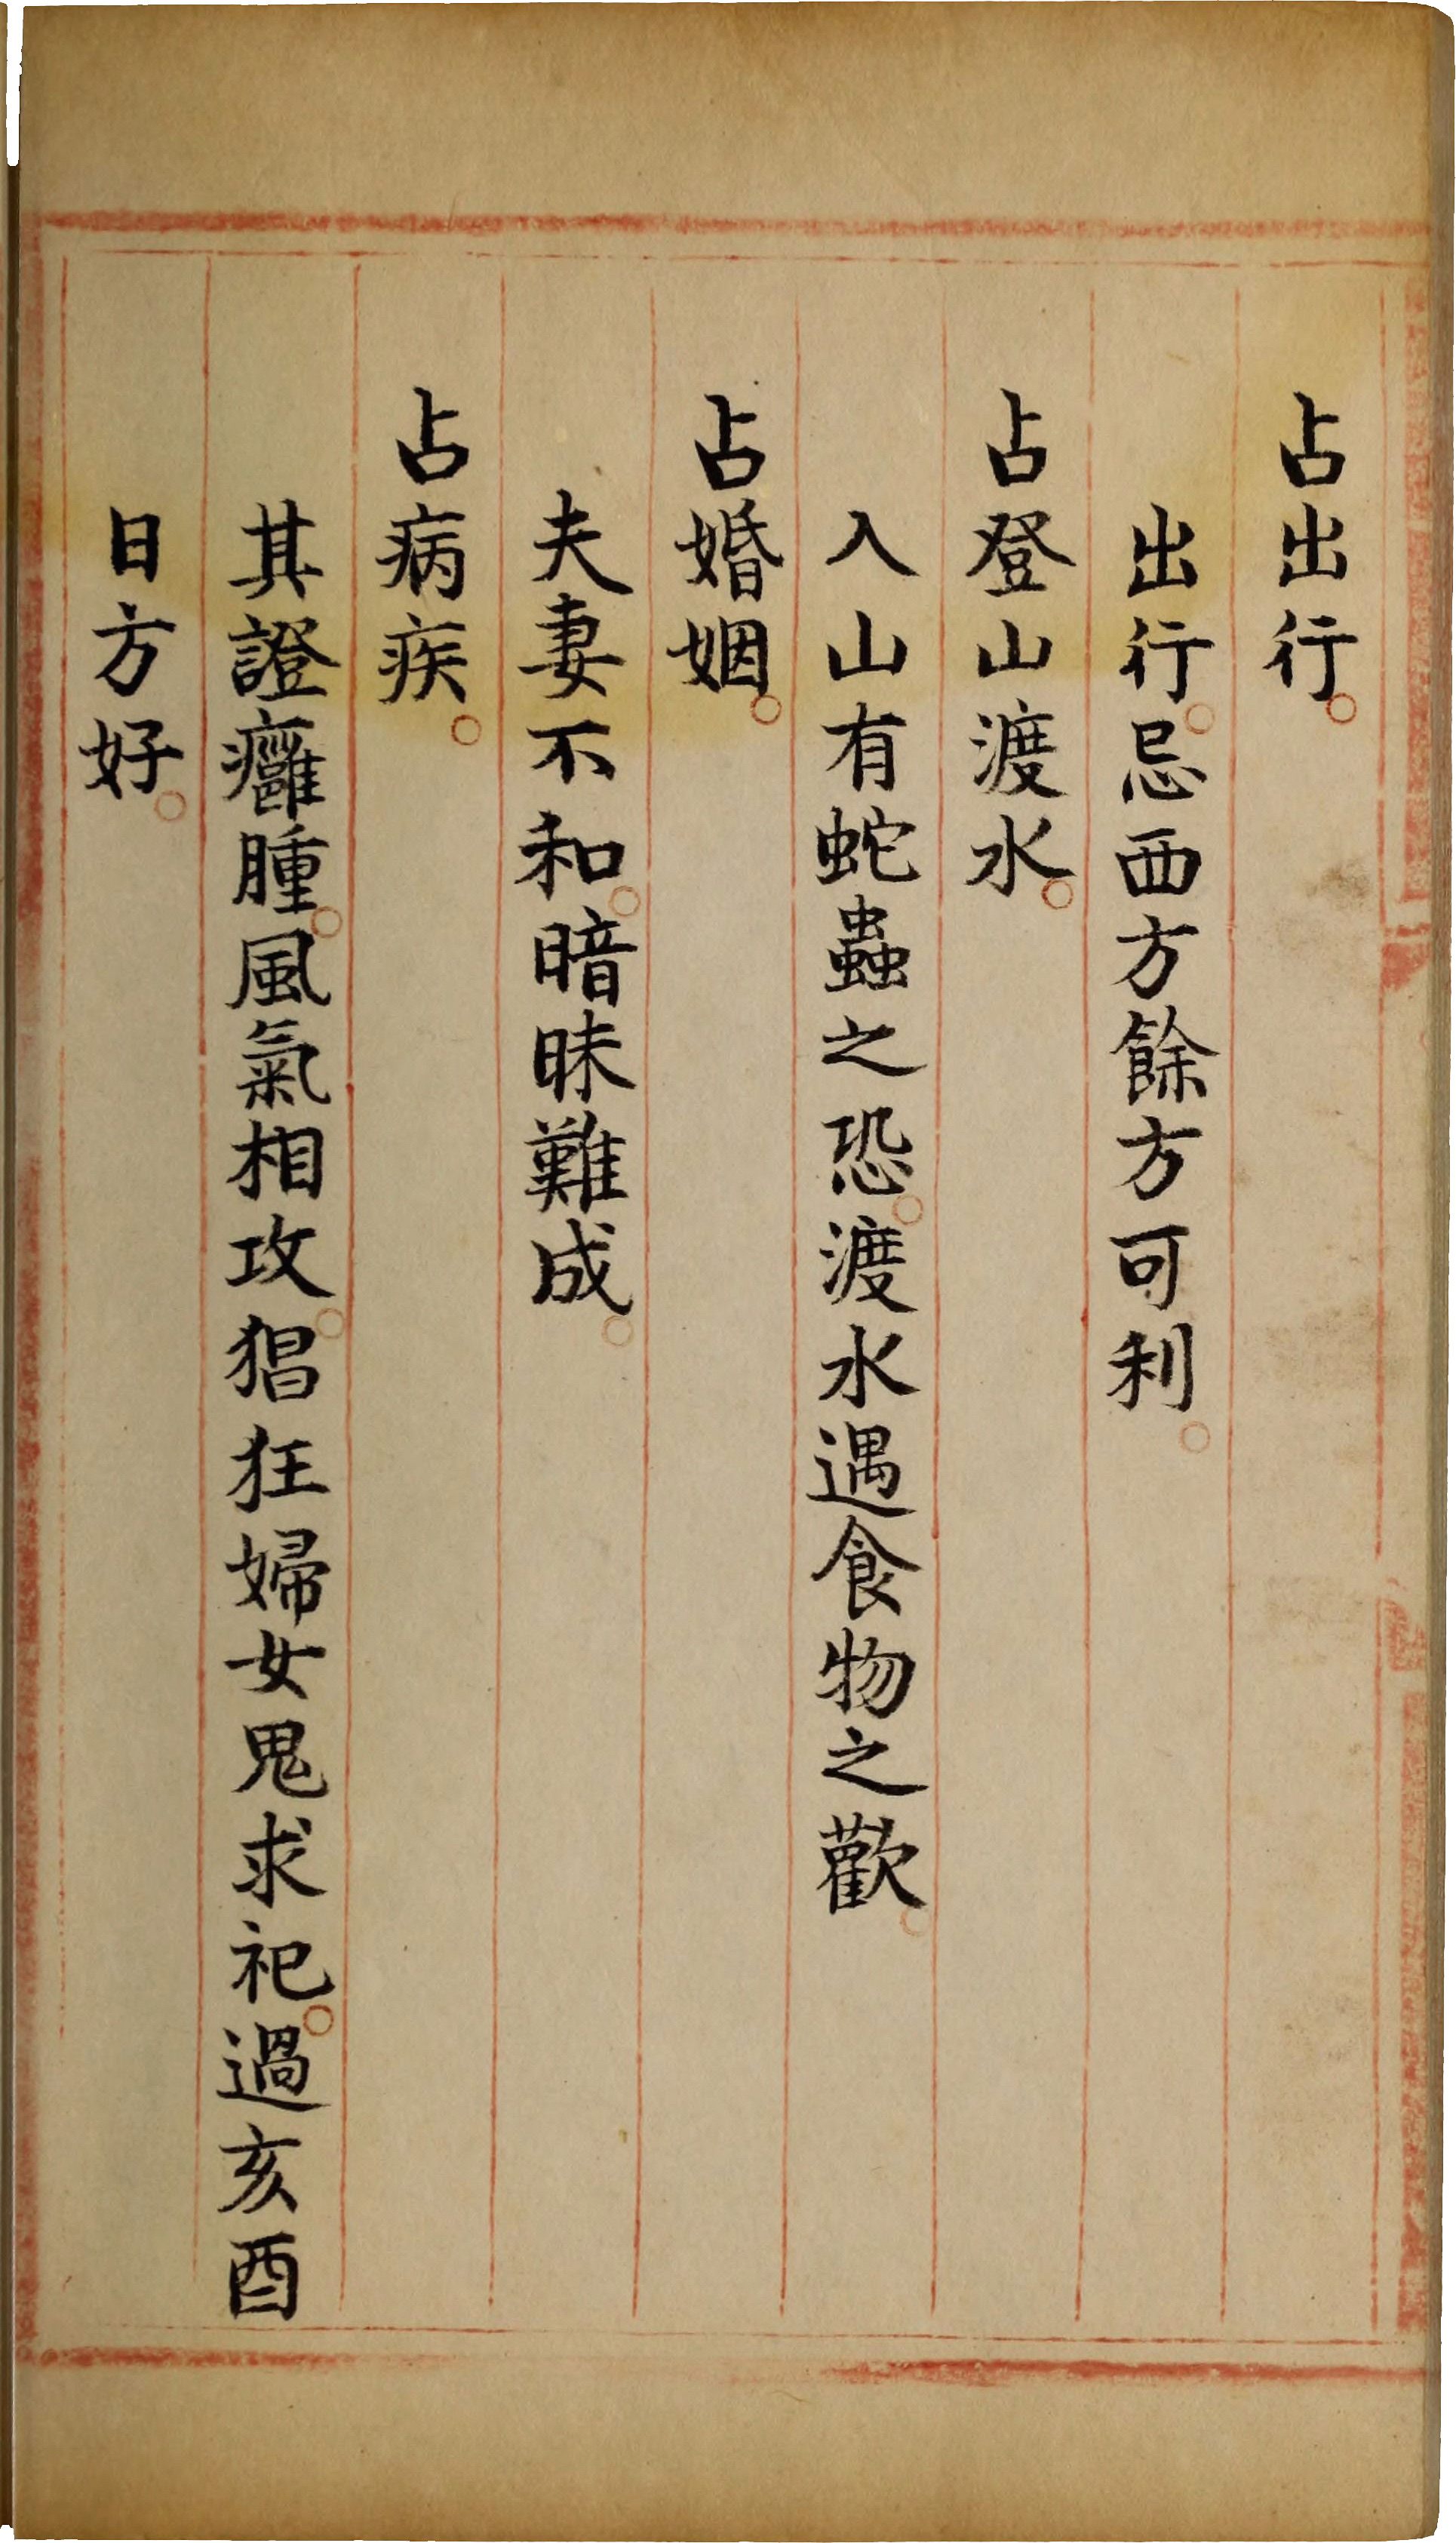 占出行。
出行。忌西方餘方可利。
占登山渡水。
入山有蛇蟲之恐。渡水遇食物之歡。
占婚姻。
夫妻不和。暗昧難成。
占病疾。
其證癰腫。風氣相攻。猖狂婦女鬼求祀。過亥酉
日方好。